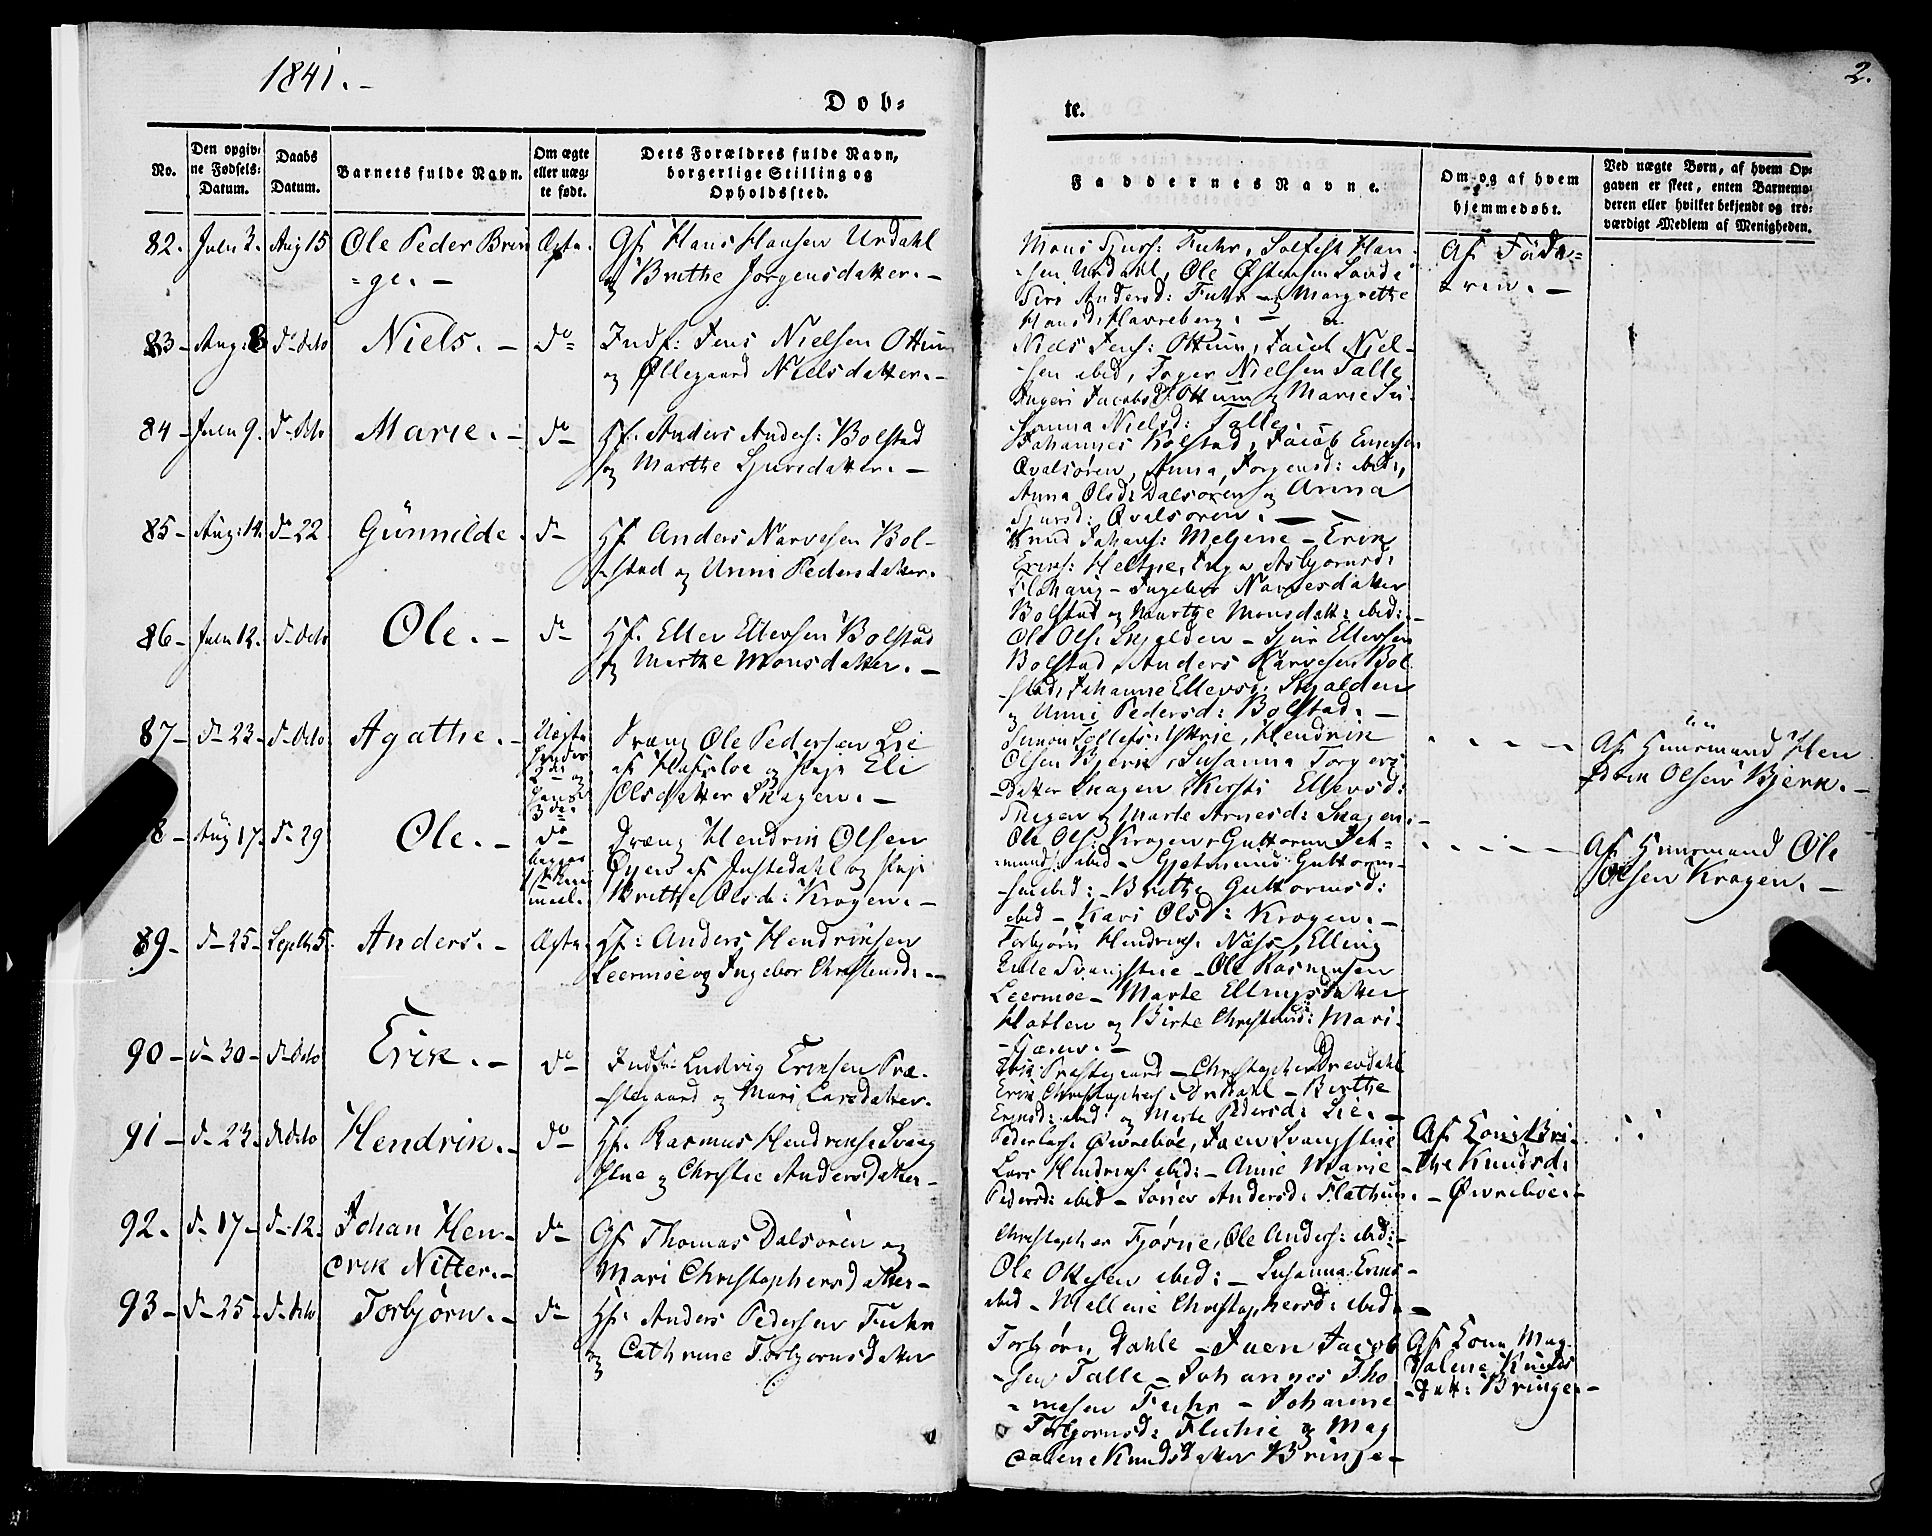 1841.-
2.
Døb-
te.
No.
Den opgiv-
ne Fødsels-
Datum.
Daabs
Datum.
Barnets fulde Navn.
Om ægte
eller uæg-
te født.
Dets Forældres fulde Navn,
borgerlige Stilling og
Opholdssted.
Faddernes Navne.
Om og af hvem
hjemmedøbt.
Ved uægte Børn, af hvem Op-
gaven er skeet, enten Barnemo-
deren eller hvilket bekjendt og tro-
værdigt Medlem af Menigheden.
82. Julii 2. Aug 15 Ole Peder Brin Ægte. Gf. Hans Hansen Urdahl
-ge. - og Brithe Jørgensdatter. -
Mons Sjurs: Fuhr, Han-
-sen Urdahl, Ole Østensen
Siri Andersd: Fuhr og Margrethe
Hansd: Havreberg. -
Af Fade-
ren. -
83 - Aug: 8 d- dito Niels. - do- Indf: Jens Nielsen Ottum
og Øllegaard Nielsdatter. -
Niels Jens: Ottum, Jacob Niel-
-sen ibid, Nielsen Talle
Ingeri Jacobsd: Ottum og Marie Su-
-sanna Nielsd: Talle.
84 - Julii 9. d- dito Marie. - do- Hf. Anders Anders: Bolstad
og Marthe Sjursdatter. -
Johannes Bolstad, Jacob
Qvalsøren, Anna Jørgensd: ibid:,
Anna Olsd: Dalsøren og Anna
Sjursd: Qvalsøren. -
85 - Aug: 14. d- 22 Gunnilde. d- Hf. Anders Narvesen Bol-
-stad og Unni Pedersdatter.
Knud Johans: Melheim - Erik
Eriks: Asbjørnsd:
- Ingebor Narvesdatter
Bolstad og Marthe Monsdatt: ibid: -
86 - Julii 12. d- dito Ole. - d- Hf. Eller Ellersen Bolstad
og Marthe Monsdatter. -
Ole Ols: Skjolden - Sjur Ellersen
Bolstad, Anders Narvesen Bol
-stad, Johanne Ellersd: Skjolden
og Unni Pedersd: Bolstad. -
87 - d- 23 - d- dito Agathe. - Uægte Dreng Ole Pedersen Lie
af Hafsloe og Pige Eli
Olsdatter Skagen. -
Simon Tollefs: Hendrik
Olsen Bjerk, Susanna Torgers
-datter Skagen Kirsti Ellersd:
Skagen og Marte Arnesd: Skagen. -
Af Huusmand Hen
drik Olsen Bjerk. -
88 - Aug 17. d- 29 Ole. - do Dreng Hendrik Olsen
af Justedahl og Pige
Brithe Olsd: Krogen. -
Ole Ols: Krogen, Guttorm
ibid - Guttorm-
-sen ibid: - Brithe Guttormsd:
ibid - Kari Olsd: Krogen. -
Af Huusmand Ole
Olsen Krogen. -
89 - d- 25 - Septb 5. Anders. - Ægte Hf: Anders Hendriksen
Leermoe og Ingebor Christensd: -
Torbjørn Hendriks: Næss, Elling
- Ole Rasmusen
Leermoe - Marte Ellingsdatter
Hatlen og Birte Christensd: Mari-
-fjæren. -
90 - d- 30 - d- dito Erik. - do- Indf: Ludvig Eriksen Præ-
-stegaard og Mari Larsdatter.
Erik Præstegaard - Christopher Drevdahl
Erik Christophers: - Birthe
Eriksd: ibid og Marte Pedersd: Lie. -
91 - d- 23. d- dito Hendrik. - do- Hf. Rasmus Hendriks: Svang
stue og Christie Andersdatter -
Peder Lars: Øvreboe, Svangstue
Lars Hendriks: ibid: - Anne Marie
Pedersd: ibid - Andersd: Flathuus. -
Af Kone Bri-
-the Knudsd:
- Øvreboe. -
92. d- 17 - d- 12. Johan Hen- d- Gf. Thomas Dalsøren og
drik Nitter. - Mari Christophersdatter -
Christopher Fjøsne, Ole Anders: ibid: -
Ole Ottesen ibid: - Susanna Eriks-
ibid - Mallene Christophersd: ibid. -
93 - d- 25. d- dito Torbjørn. - d- Hf. Anders Pedersen Fuhr
og Cathrine Torbjørnsdatter
Torbjørn Dahle - Jacob
-sen Talle - Johannes Tho
-mesen Fuhr - Johanne
Torbjørnsd: og Mag
dalene Knudsdatter Bringe -
Af Kone Mag-
dalene Knuds
-datt: Bringe. -